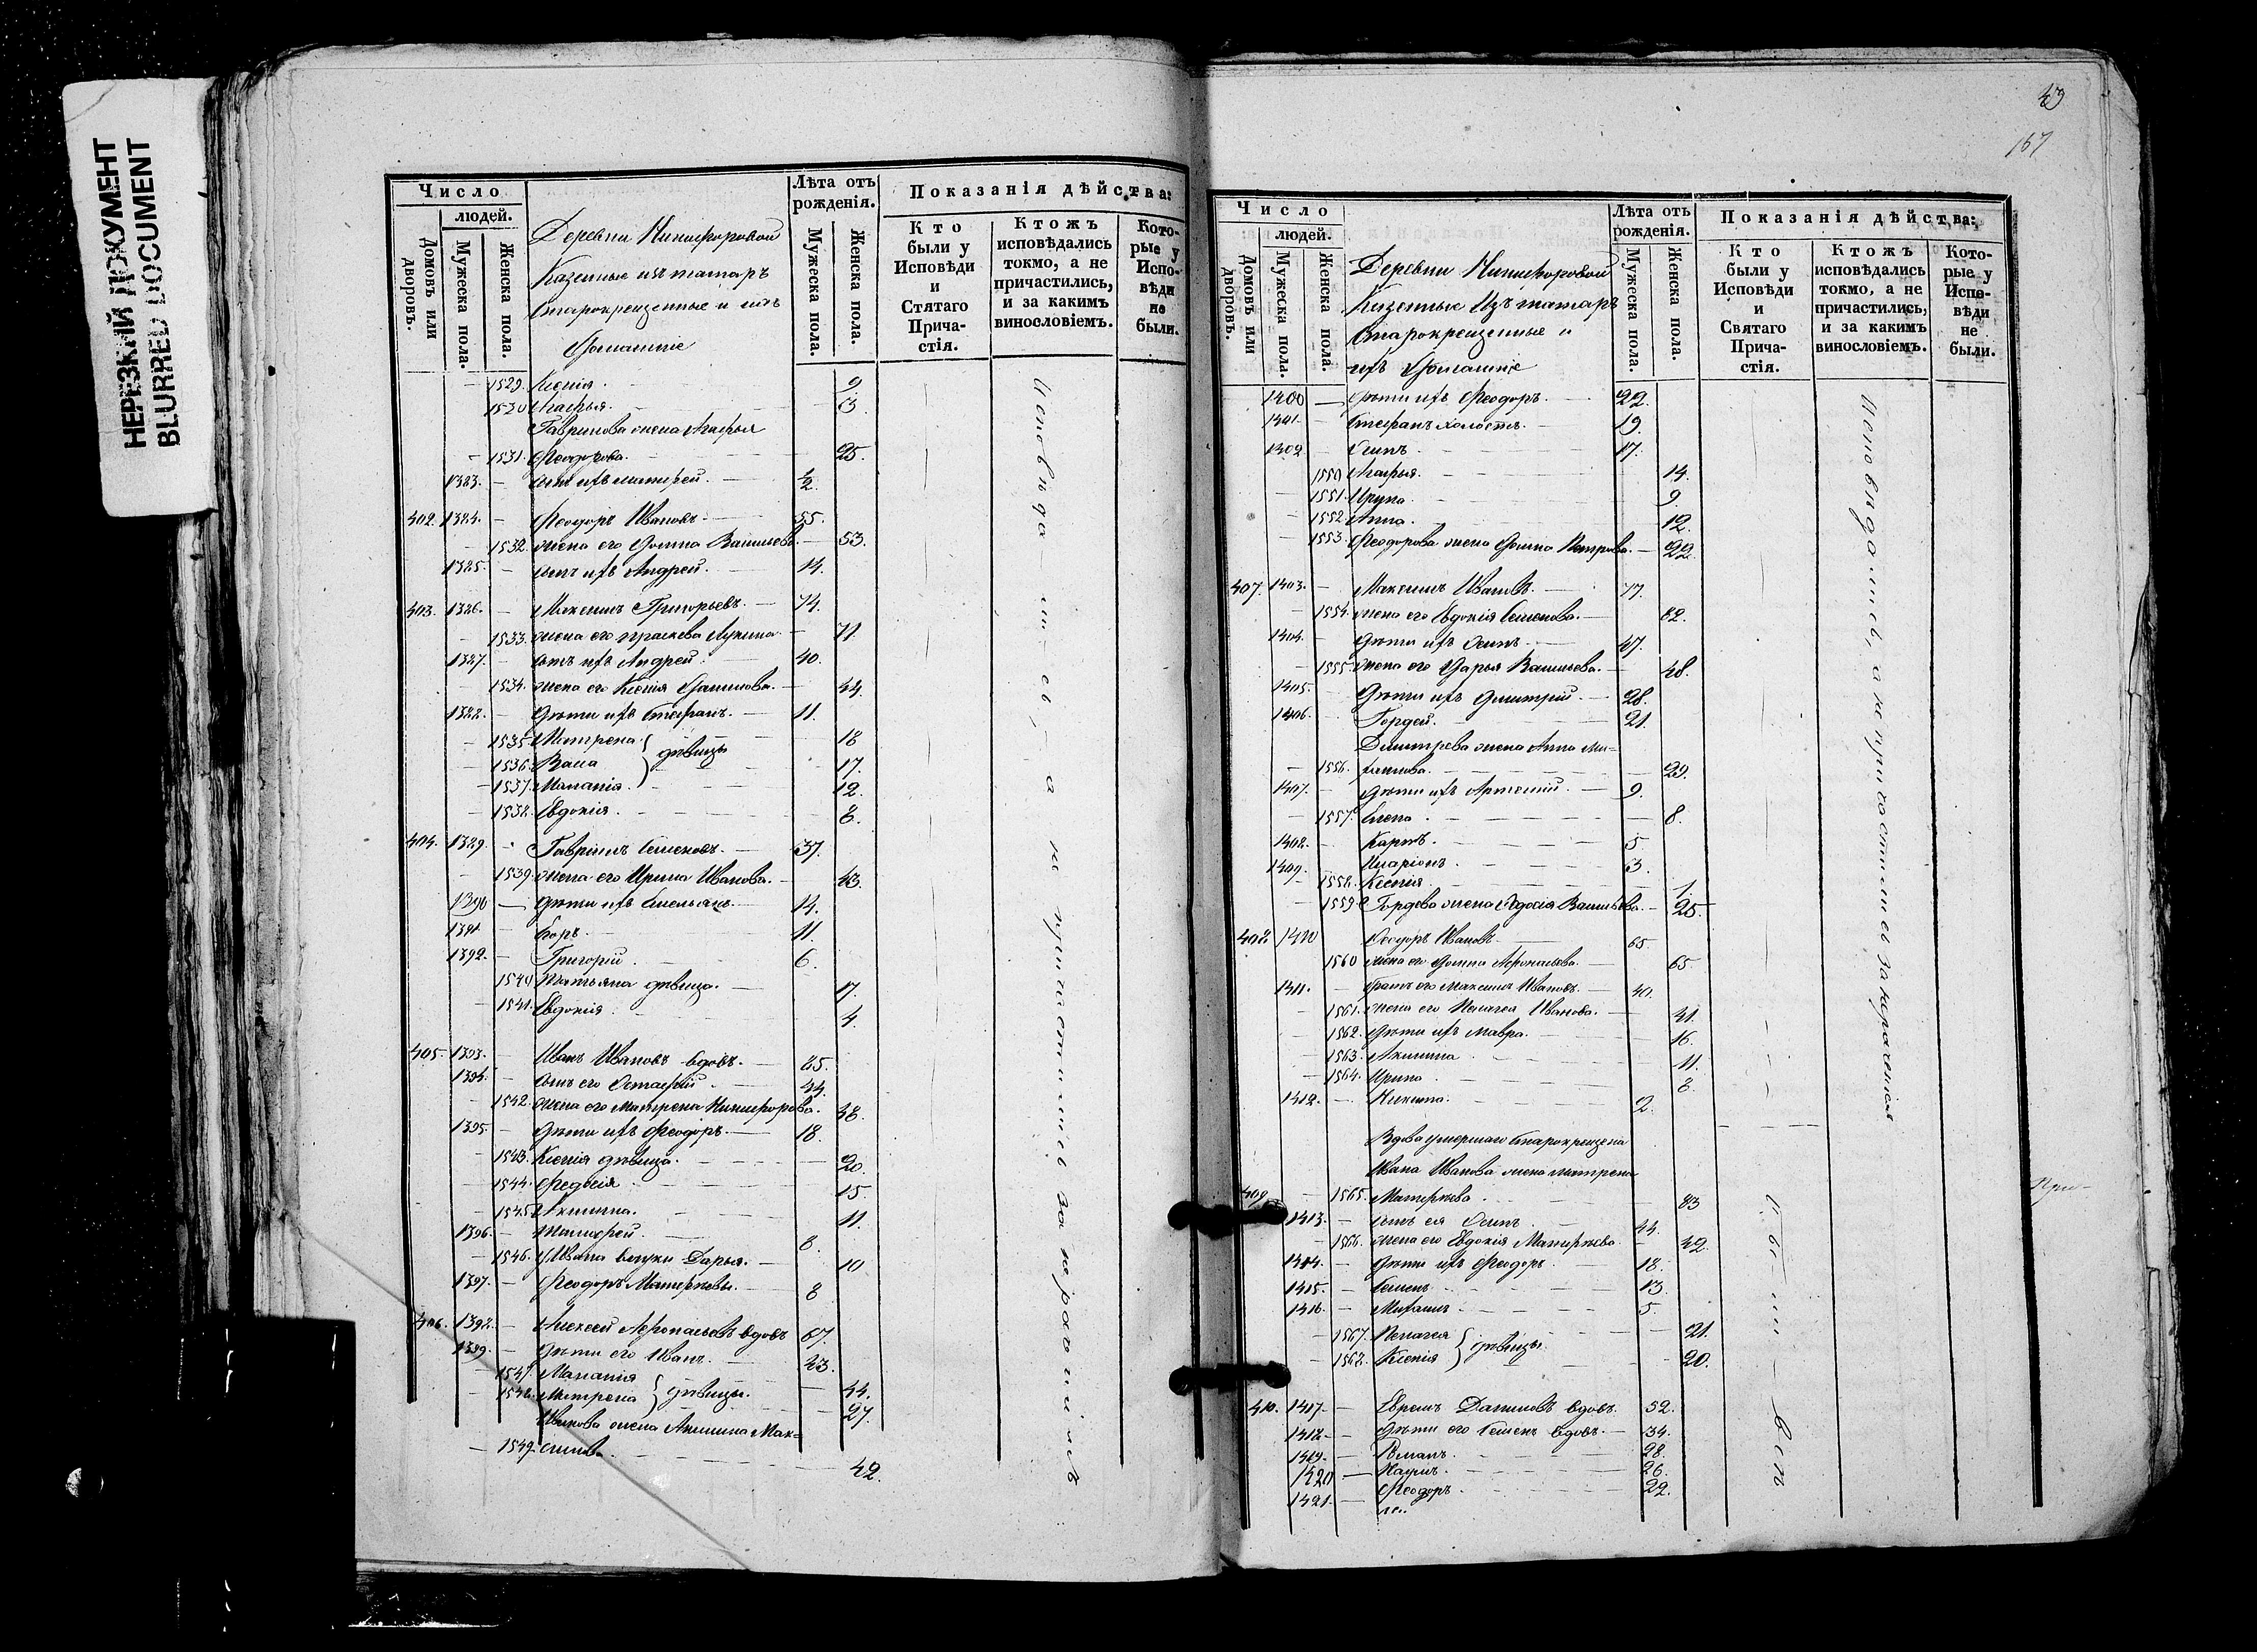 НЕРЕЗКИЙ ДОКУМЕНТ
BLURRED DOCUMENT
Число
людей.
Домовъ или дворовъ.
Мужеска пола.
Женска пола.
Деревни Никифоровой
Казенные изъ татаръ
Старокрещенные и ихъ
Домашніе
Лѣта отъ рожденія.
Мужеска пола.
Женска пола.
Показанія дѣйства:
Кто были у Исповѣди и Стятаго Прича-стія.
Ктожъ исповѣдались токмо, а не причастились, и за какимъ винословіемъ.
Кото-рые у Испо-вѣди не были.
1529. Ксенія. 9
1530 Агафья. 3.
Гаврилова жена Агафья
1531. Феодорова. 25.
1383. сынъ ихъ 1/2.
402. 1384. Феодоръ Ивановъ. 55.
1532. жена его Домна Васильева. 53.
1385. сынъ ихъ Андрей. 14.
403. 1386. Максимъ Григорьевъ. 74.
1533. жена его Праскева Лукина 71.
1387. сынъ ихъ Андрей. 40.
1534. жена его Ксенія Данилова. 44.
1388. дѣти ихъ Стефанъ. 11.
1535. Матрена 18
1536. Васса дѣвицы 17.
1537. Маланія. 12.
1538. Евдокія. 8.
404. 1389. Гавріилъ Семеновъ. 37.
1539. жена его Ирина Иванова. 43.
1390 дѣти ихъ Емельянъ. 14.
1391 Егоръ. 11.
1392. Григорій. 6.
1540 Татьяна дѣвица. 17.
1541. Евдокія 4.
405. 1393. Иванъ Ивановъ вдовъ. 85.
1394. сынъ его Остафій 44.
1542. жена его Матрена Никифорова. 38.
1395. дѣти ихъ Феодоръ. 18.
1543. Ксенія дѣвица. 20.
1544. Федосія 15.
1545. Акилина. 11.
1396. Тимофей. 8.
1546. Ивана внуки Дарья. 10
1397. Феодоръ Матвѣевы. 8
406. 1398. Алексей Афонасьевъ вдовъ 67.
1399. дѣти его Иванъ. 43.
1547. Маланія 44.
1548. Матрена дѣвицы. 27.
Иванова жена Акилина Мак=
1549. симова. 42.
Исповѣдались, а не причастились за нераченіемъ
43
157
Число
людей.
Домовъ или дворовъ.
Мужеска пола.
Женска пола.
Деревни Никифоровой
Казенные Изъ татаръ
Старокрещенные и
ихъ Домашніе
Лѣта отъ рожденія.
Мужеска пола.
Женска пола.
Показанія дѣйства:
Кто были у Исповѣди и Святаго Прича-стія.
Ктожъ исповѣдались токмо, а не причастились, и за какимъ винословіемъ.
Кото-рые у Испо-вѣди не были.
1400 дѣти ихъ Феодоръ. 22.
1401. Стефанъ холостъ. 19.
1402 Осипъ 17.
1550 Агафья. 14.
1551. Ирина. 9.
1552. Анна. 12.
1553. Феодорова жена Домна Петрова. 22.
407. 1403. Максимъ Ивановъ. 77.
1554. жена его Евдокія Семенова. 82.
1404. дѣти ихъ Осипъ. 47.
1555. жена его Дарья Васильева. 48.
1405. дѣти ихъ Дмитрій. 28.
1406. Гордей. 21.
Дмитрева жена Анна Ми=
1556. хаилова. 29.
1407. дѣти ихъ Артемій. 9.
1557. Елена 8.
1408. Карпъ. 5
1409. Иларіонъ 3.
1558. Ксенія 1.
1559. Гордева жена Федосія Васильева. 25.
408 1410 Феодоръ Ивановъ 65
1560 жена его Домна Афонасьева. 65.
1411. братъ его Максимъ Ивановъ. 40.
1561. жена его Пелагея Иванова. 41.
1562. дѣти ихъ Мавра. 16.
1563. Акилина 11.
1564. Ирина 8.
1412. Никита. 2.
Вдова умершаго Старокрещена
Ивана Иванова жена Матрена
409 1565. Матвѣева 83
1413. сынъ ея Осипъ 44.
1566. жена его Евдокія Матвѣева 42.
1414. дѣти ихъ Феодоръ 18.
1415. Семенъ 13.
1416. Михаилъ 5.
1567. Пелагея 21.
1568. Ксенія дѣвицы 20.
410. 1417. Ефремъ Даниловъ вдовъ. 52.
1418. дѣти его Семенъ вдовъ. 34.
1419. Романъ. 28.
1420 Наумъ. 26.
1421. Феодоръ. 22.
Исповѣдались, а не причастились за нераченіемъ
Были Всѣ
При-